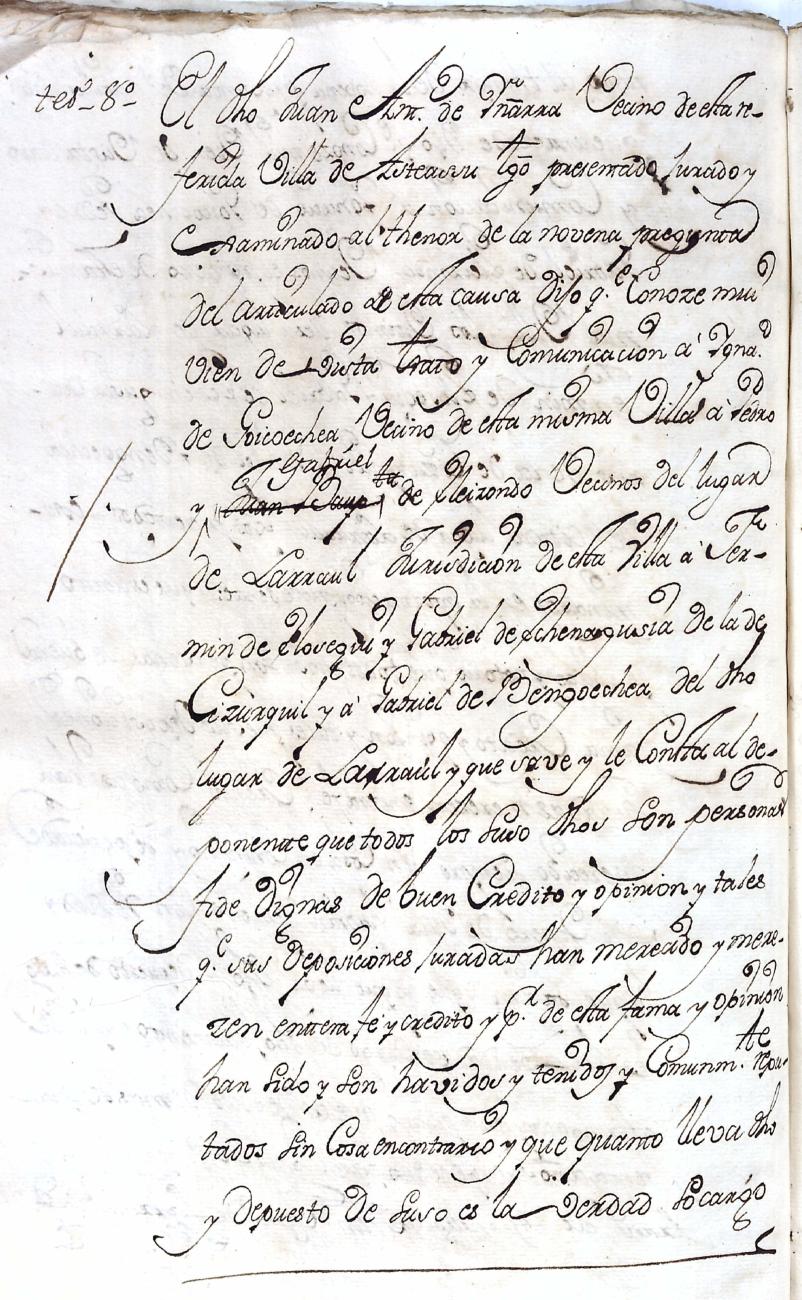 tesº 8º
El dho Juan Antº. de Yñarra Vecino de esta re-
ferida Villa de Asteassu tgõ presentado, jurado y
examinado al thenor de la novena pregunta
del articulado de esta causa dijo q.e Conoze mui
vien de vista trato y Comunicacion a' Ygna.º
de Goicoechea Vecino de esta misma Villa a' Pedro
Gabriel
y Juan Baup.ta de Vecinos del lugar
de Larraul Jurisdicion de esta Villa a' Fer-
min de Elosegui y Gabriel de Echenagusia de la de
Cizurquil y a' Gabriel de Bengoechea del dho
lugar de Larraul y que save y le Consta al de-
ponente que todos los suso dhos son personas
fide dignas de buen Credito y opinion y tales
q.e sus deposiciones juradas han merecido y mere-
zen entera fe y credito y p.r de esta fama y opinion
han sido y son havidos y tenidos y Comunm.te repu-
tados sin Cosa encontrario y que quanto lleva dho
y depuesto de suso es la verdad so cargo